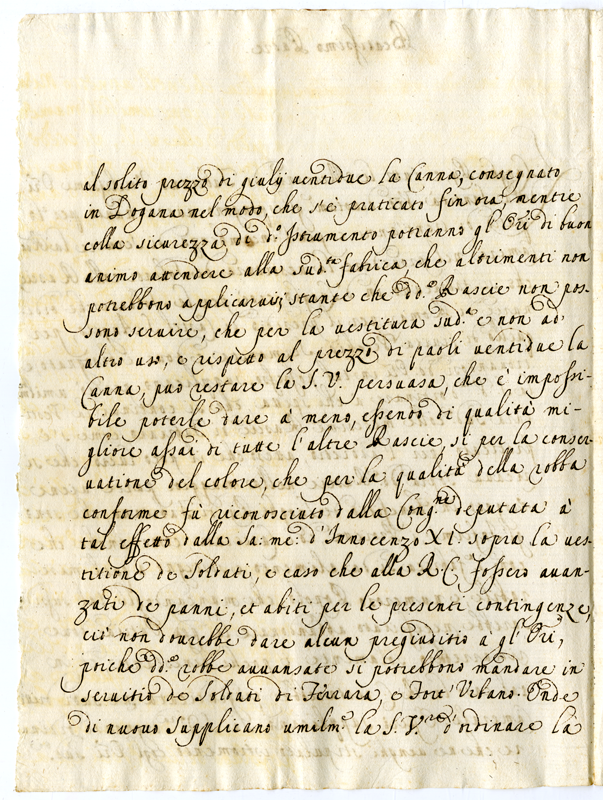 al solito prezzo di giulij uentidue la Canna, consegnato
in Dogana nel modo, che s'è praticato fin ora, mentre
colla sicurezza di d.º Istrumento potranno gl'Ori di buon
animo attendere alla sud.ta fabrica, che altrimenti non
potrebbono applicarui, stante che dd.e Rascie non pos-
sono seruire, che per la uestitura sud.a e non ad
altro uso, e rispetto al prezzo di paoli uentidue la
Canna, può restare la S. V. persuasa, che è impossi-
bile poterle dare à meno, essendo di qualità mi-
gliore assai di tutte l'altre Rascie, si per la conser
uatione del colore, che per la qualità della robba
conforme fù riconosciuto dalla Cong.ne deputata à
tal effetto dalla Sa: me: d'Innocenzo XI. sopra la ues-
titione de Soldati, e caso che alla R. C. fossero auan-
zati de panni, et abiti per le presenti contingenze,
ciò non dourebbe dare alcun pregiuditio à gl'Ori,
poiche dd.e robbe auuansate si potrebbono mandare in
seruitio de Soldati di Ferrara, e Fort'Urbano. Onde
di nuouo supplicano umilm.e la S. V.ra d'ordinare la